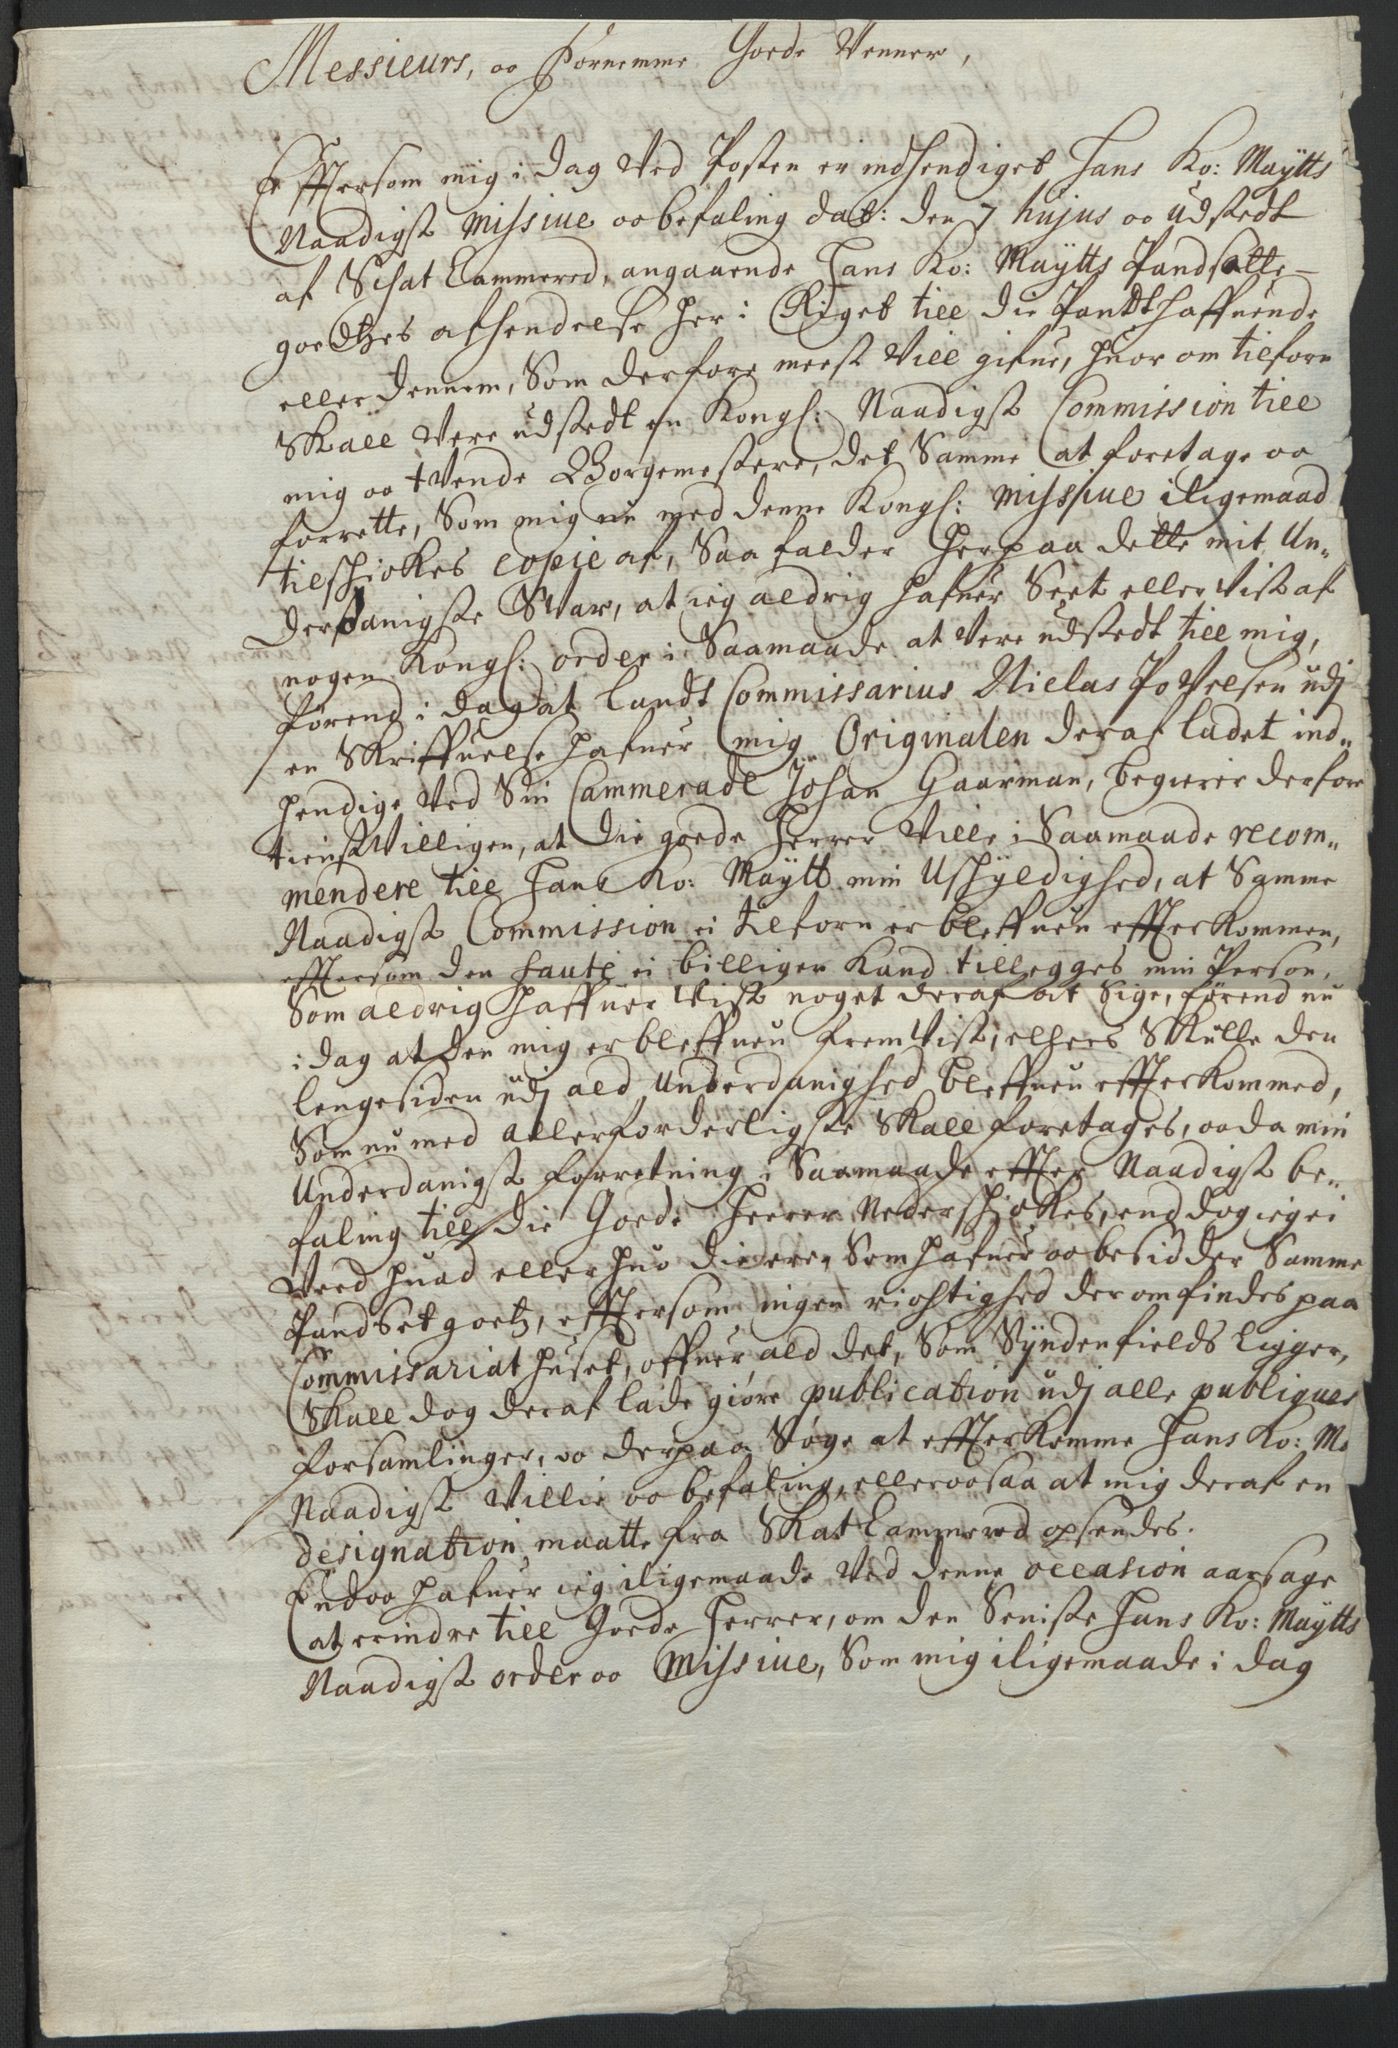 Messieurs, oc Fornemme Goede Venner,
Effttersom mig i dag Ved Posten er indhendiget Hans Ko: Maÿtts
Naadigst Missiue oc befaling dat: den 7 hujus oc udstedt
af Schat Cammered, angaaende Hans Ko: Maÿtts Pandsatte
goedtzes afhendelse her i Riget till die Pandthaffuende
eller dennem, Som derfore meest Vill gifue, huor om tilforn
Skall Vere udstedt en Kongl: Naadigst Commission till
mig oc tVende Borgemestere, det Samme at foretage oc
forrette, Som mig nu med denne Kongl: Missiue iligemaad
tilschickes copie af, Saa falder herpaa dette mit Un„
derdanigste Svar, at ieg aldrig hafuer Seet eller Vist af
nogen Kongl: order i Saamaade at Vere udstedt till mig,
førend i dag at Landt Commissarius Nielas Povelsen udj
en Skriffuelse hafuer mig Originalen deraf ladet ind„
hendige Ved Sin Cammerade Johan Gaarman, begierer derfore
tienstVilligen, at die goede Herrer Ville i Saamaade recom„
mendere till Hans Ko: Maÿtt min Uschyldighed, at Samme
Naadigst Commission ei tilforn er bleffuen effterkommen,
efftersom den Faute ei billigen kand tillegges min Person,
Som aldrig haffuer Vist noget deraf at Sige, førend nu
i dag at den mig er bleffuen fremVist, ellers Skulle den
lengesiden udj ald Underdanighed bleffuen effterkommed,
Som nu med allerforderligste Skall foretages, oc da min
Underdanigst forretning i Saamaade effter Naadigst be„
faling till die Goede Herrer Nederschickes, end dog ieg ei
Veed huad eller huo die ere, Som hafuer oc besidder Samme
Pandset goetz, efftersom ingen richtighed derom findes paa
Commissariat huset, offuer ald det, Som Sÿndenfields ligger,
Skall dog deraf lade giøre publication udj alle publiques
forsamlinger, oc derpaa Søge at effterkomme Hans Ko: M:
Naadigst Villie oc befaling, eller ocsaa at mig deraf en
designation maatte fra Skat Cammered opsendes.
Endoc hafuer ieg iligemaade Ved denne occasion aarsage
at erindre till Goede Herrer, om den Seniste Hans Ko: Maÿtts
Naadigst order oc Missiue, Som mig iligemaade i dag